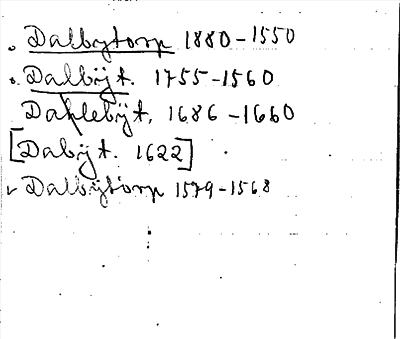 Dalbytorp 1880-1550
Dalbÿt. 1755-1560
Dahlebÿt, 1686-1660
[Dabÿt. 1622]
Dalbÿtorp 1579-1568